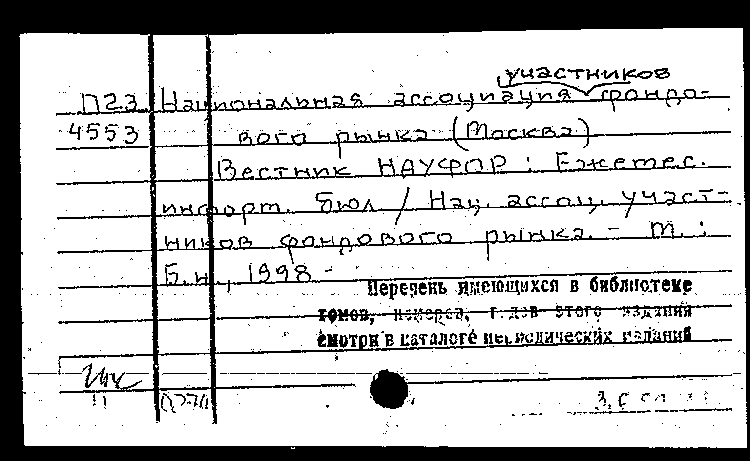 участников
П23 Национальная ассоциация фондо-
4553 вого рынка (Москва)
Вестник НАУФОР : Ежемес.
информ. бюл / Нац. ассоц. участ-
ников фондового рынка. - М. :
Б.и., 1998 -
Перечень имеющихся в библиотеке
томов, номеров, годов этого издания
смотри в каталоге периодических изданий